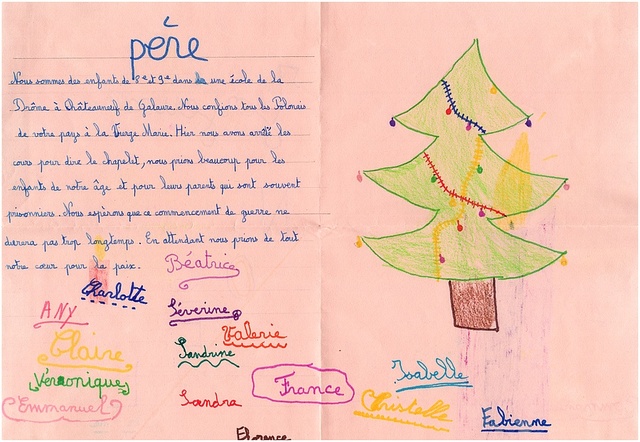 père
Nous sommes des enfants de 8e et 9e dans une école de la
Drôme à Châteauneuf de Galaure. Nous confions tous les Polonais
de votre pays à la Vierge Marie. Hier nous avons arrêté les
cours pour dire le chapelet, nous prions beaucoup pour les
enfants de notre âge et pour leurs parents qui sont souvent
prisonniers. Nous espérons que ce commencement de guerre ne
durera pas trop longtemps. En attendant nous prions de tout
notre cœur pour la paix.
Béatrice
Charlotte
ANY
Séverine
Valerie
Claire
Sandrine
Véronique
Emmanuel
Sandra
France
Isabelle
Christelle
Fabienne
Florence